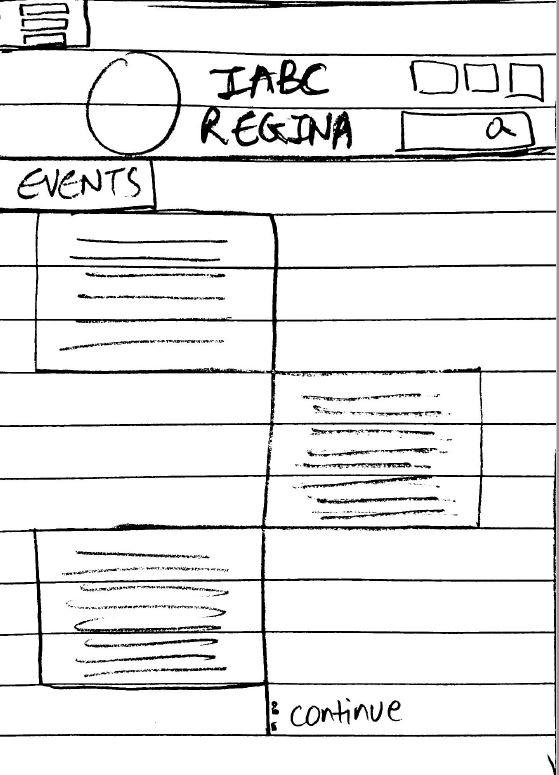 IABC
REGINA
EVENTS
continue